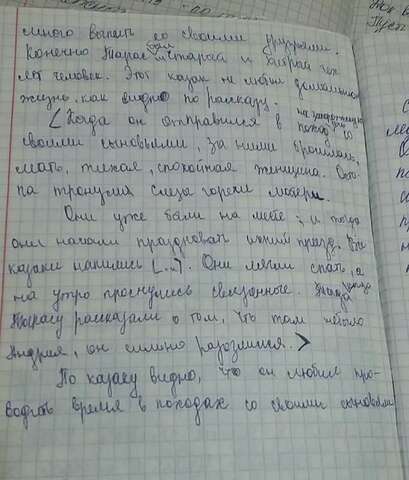 много выпить со своими друзьями.
Конечно Тарас был старый и добрый
лет человек. Этот казак не любил домашнюю
жизнь, как видно по рассказу.
< Когда он отправился в поход со
своими сыновьями, за ними бросилась
мать, тихая, спокойная женщина.
па тронулия слеза горем матери.
Они уже были на месте, и тогда
они начали праздновать ихний приезд. Все
казаки напились [...]. Они легли спать, а
на утро проснулись связанные. Когда
Тарасу рассказали о том, что там не было
Андрия, он сильно разозлился. >
По казаку видно, что он любил про-
водить время в походах со своими сыновьями